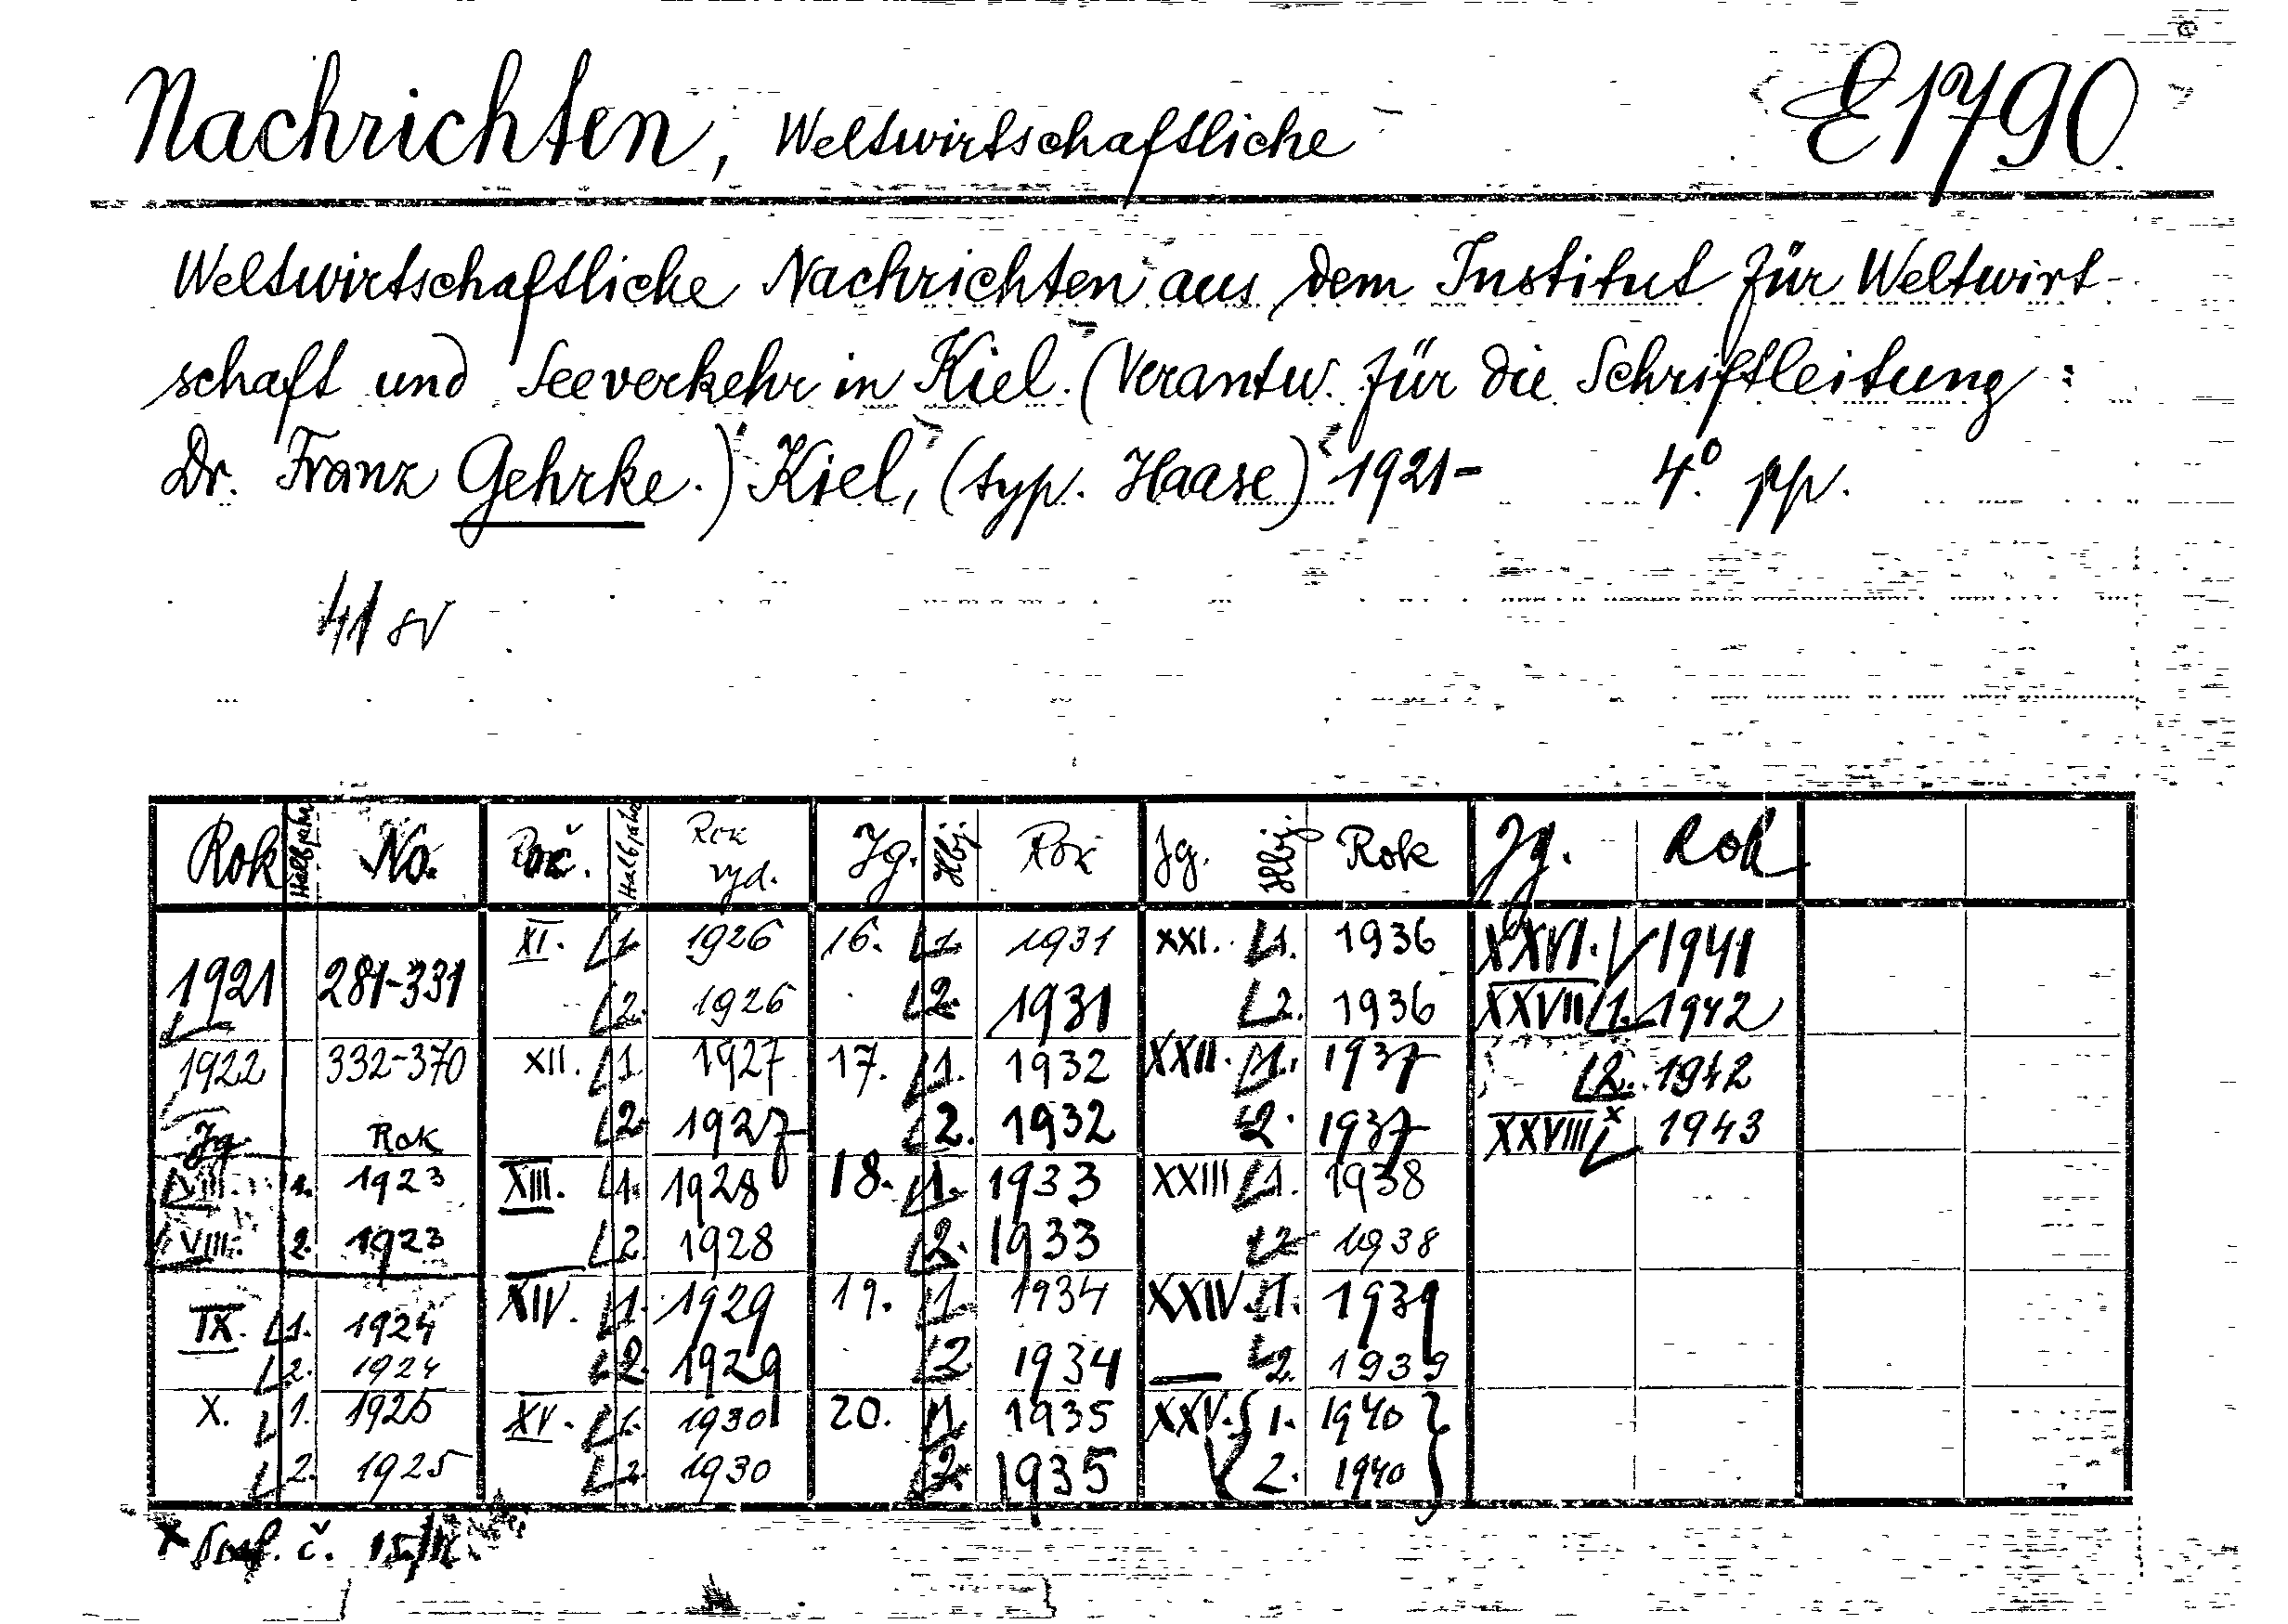 Nachrichten, Weltwirtschaftliche E1790
Weltwirtschaftliche Nachrichten aus dem Institut für Weltwirt-
schaft und Seeverkehr in Kiel. (Verantw. für die Schriftleitung:
Dr. Franz Gehrke.) Kiel, (typ. Haase) 1921- 4.° pp.
41 sv
Rok Halbjahr No. Roč. Halbjahr Rok vyd. Jg. Hbj. Rok Jg. Hlbj. Rok Jg. Rok
XI. 1. 1926 16. 1. 1931 XXI. 1. 1936 XXVI. 1941
1921 281-331 2. 1926 2. 1931 2. 1936 XXVII 1. 1942
1922 332-370 XII. 1. 1927 17. 1. 1932 XXII. 1. 1937 2. 1942
Jg Rok 2. 1927 2. 1932 2. 1937 XXVIII x 1943
VIII. 1. 1923 XIII. 1. 1928 18. 1. 1933 XXIII 1. 1938
VIII. 2. 1923 2. 1928 2. 1933 2 1938
IX. 1. 1924 XIV. 1. 1929 19. 1. 1934 XXIV. 1. 1939
2. 1924 2. 1929 2 1934 2. 1939
X. 1. 1925 XV. 1. 1930 20. 1. 1935 XXV. { 1. 1940 }
2. 1925 2. 1930 2. 1935 2. 1940
x č.